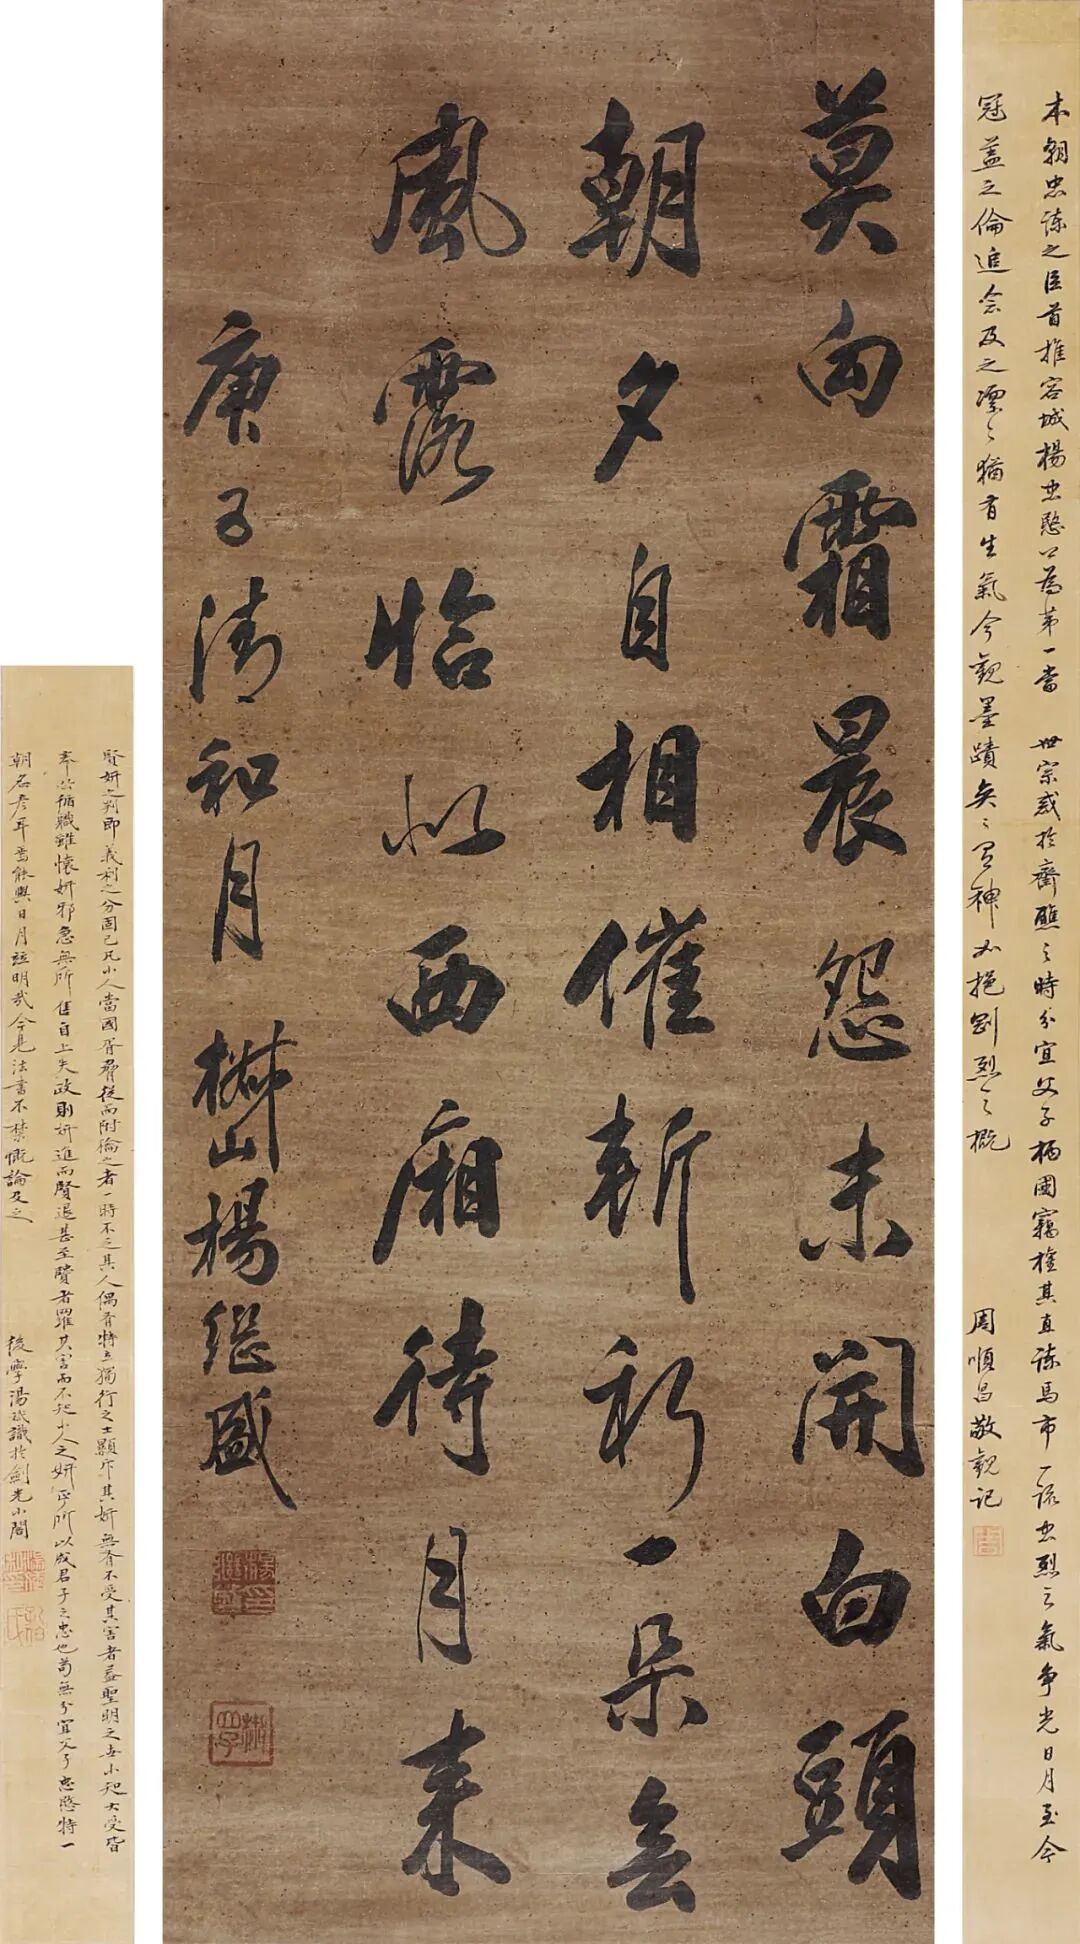 本朝忠諫之臣首推容城楊忠愍公為第一當 世宗惑於齋醮之時分宜父子柄國竊權其直諫馬市一疏忠烈之氣爭光日月至今
冠蓋之倫追念及之凜〻猶有生氣今觀墨蹟奕〻有神如挹剛烈之概 周順昌敬觀記
莫向霜晨怨未開白頭
朝夕自相催斬新一朵含
風露恰似西廂待月來
庚子清和月椒山楊繼盛
賢奸之判即義利之分固已凡小人當國胥群從而附之者一時不乏其人偶有特立獨行之士顯斥其奸無有不受其害者蓋聖明之世小大受皆
奉公循職雖懷奸邪急無所售自上失政則奸進而賢退甚至賢者罹其害而不小人之奸正所以成君子之忠也苟無分宜父子忠愍特一
朝名彥耳焉能與日月並明哉今見法書不禁慨論及之 後學湯斌識於劍光小閣